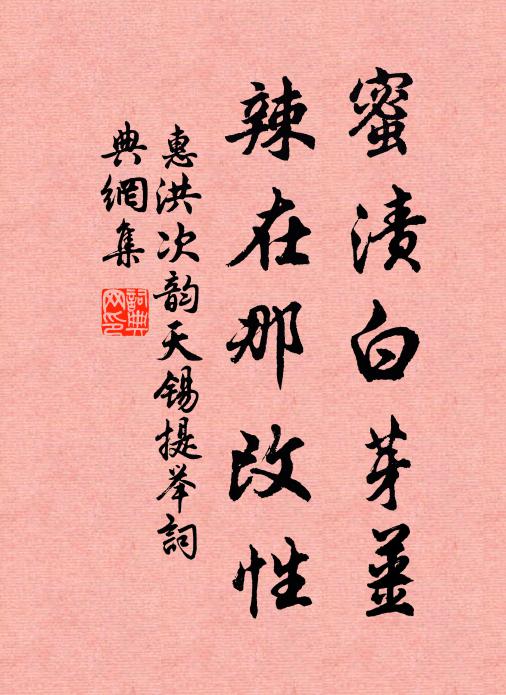 蜜漬白芽薑
辣在那改性
惠洪次韵天锡提举詞
典網集
詞典网印